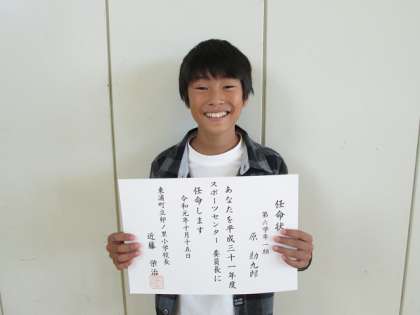 任命状
第六学年一組
原 勘九郎
あなたを平成三十一年度
スポーツセンター 委員長に
任命します
令和元年十月十五日
東浦町立卯ノ里小学校長
近藤 栄治